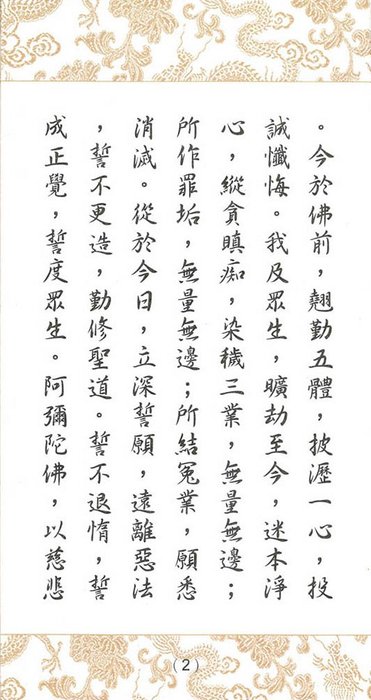 。今於佛前，翹勤五體，披瀝一心，投
誠懺悔。我及眾生，曠劫至今，迷本淨
心，縱貪瞋痴，染穢三業，無量無邊；
所作罪垢，無量無邊；所結冤業，願悉
消滅。從於今日，立深誓願，遠離惡法
，誓不更造，勤修聖道。誓不退惰，誓
成正覺，誓度眾生。阿彌陀佛，以慈悲
(2)